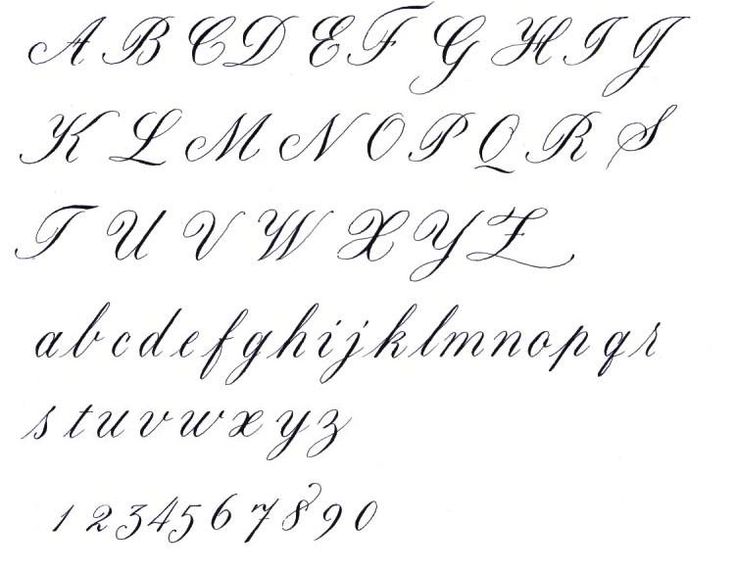 A B C D E F G H I J
K L M N O P Q R S
T U V W X Y Z
a b c d e f g h i j k l m n o p q r
s t u v w x y z
1 2 3 4 5 6 7 8 9 0